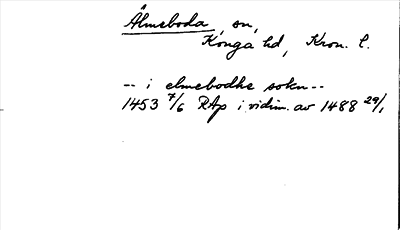 Älmeboda, sn,
Konga hd, Kron. l.
-- i elmebodhe sokn--
1453 7/6 RAp i vidim. av 1488 29/1